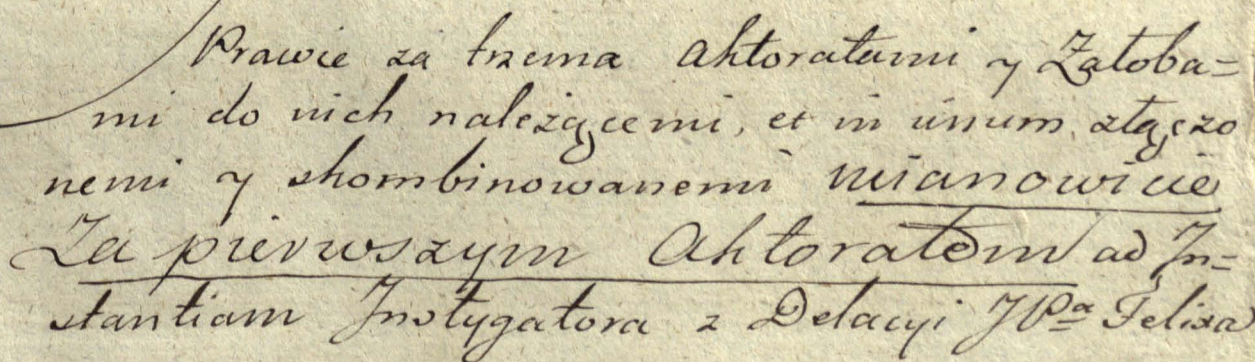 Prawie za trzema Aktoratami y Załoba=
mi do nich należącemi, et in unum złączo
nemi y skombinowanemi mianowicie
Za pierwszym Aktoratem ad In=
stantiam Instygatora z Delacyi JPa Felixa